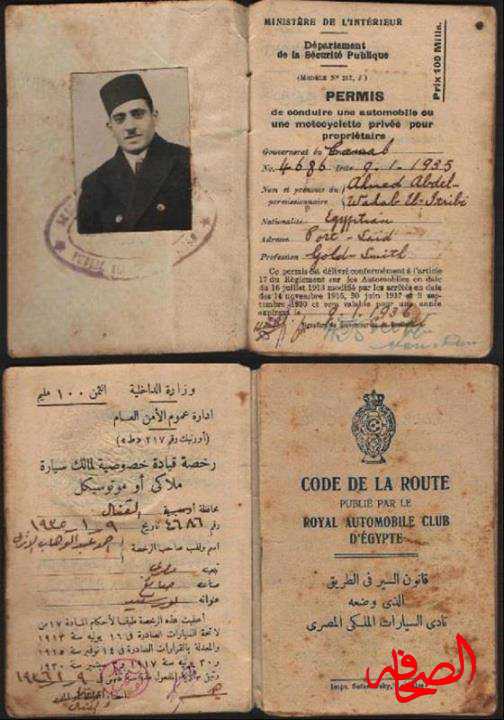 MINISTÈRE DE L'INTÉRIEUR
Département
de la Sécurité Publique
(MODÈLE Nº 217, J)
Prix 100 Mills.
PERMIS
de conduire une automobile ou
une motocyclette privée pour
propriétaire
Gouvernorat du Canal
No. 4686 date 9.1.1935
Nom et prénoms du Ahmed Abdel-
permissionnaire Wahab El-
Nationalité Egyptian
Adresse Port-Said
Profession Gold-Smith
Ce permis est délivré conformément à l'article
17 du Règlement sur les Automobiles en date
du 16 juillet 1913 modifié par les arrêtés en date
des 14 novembre 1915, 30 juin 1917 et 9 sep-
tembre 1930 et sera valable pour une année
expirant le 9.1.1936
وزارة الداخلية
الثمن ١٠٠ مليم
ادارة عموم الأمن العام
(أورنيك رقم ٢١٧ «ط»)
رخصة قيادة خصوصية لمالك سيارة
ملاكى أو موتوسيكل
محافظة القنال
رقم ٤٦٨٦ تاريخ ٩-١-١٩٣٥
اسم ولقب صاحب الرخصة احمد عبد الوهاب
تبعيته مصرى
صناعته صايغ
عنوانه بورسعيد
أعطيت هذه الرخصة طبقا لأحكام المادة ١٧ من
لائحة السيارات الصادرة فى ١٦ يوليه سنة ١٩١٣
والمعدلة بالقرارات الصادرة فى ١٤ نوفمبر سنة ١٩١٥
و ٣٠ يونيه سنة ١٩١٧ سبتمبر سنة ١٩٣٠
٩-١-١٩٣٦
CODE DE LA ROUTE
PUBLIÉ PAR LE
ROYAL AUTOMOBILE CLUB
D'ÉGYPTE
قانون السير فى الطريق
الذى وضعه
نادى السيارات الملكى المصرى
Imp.
الصحافة